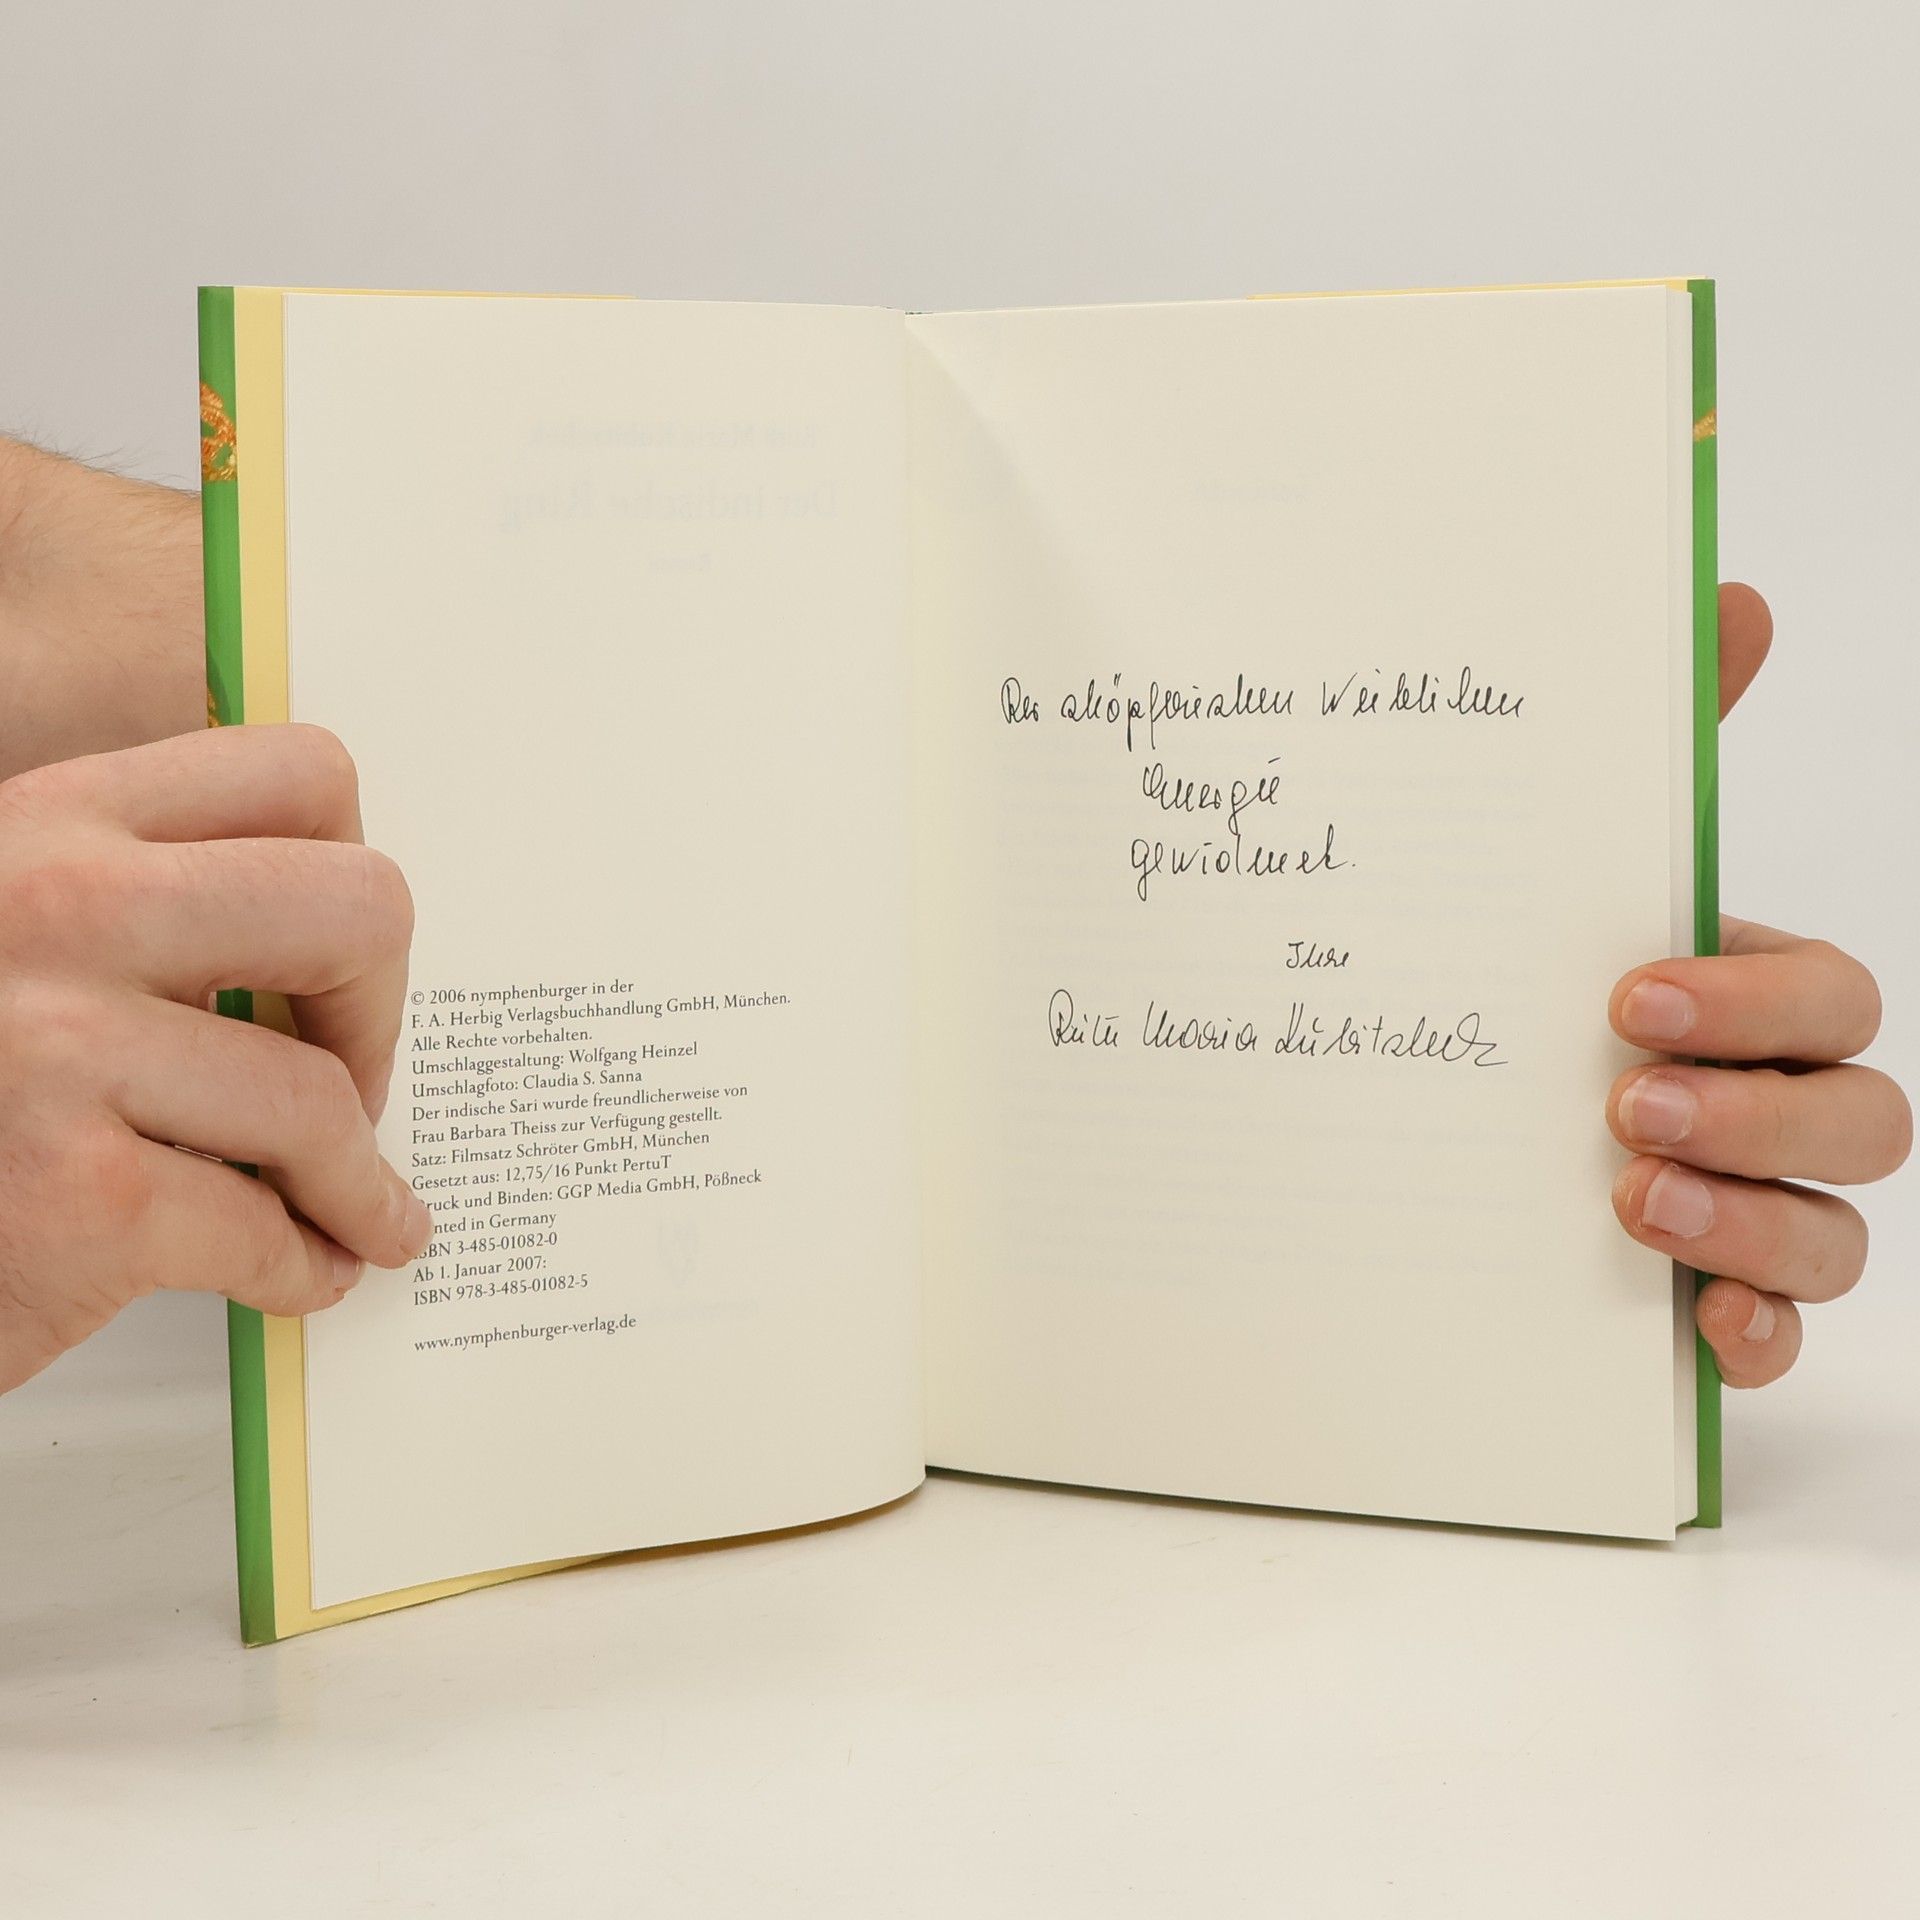 © 2006 nymphenburger in der
F. A. Herbig Verlagsbuchhandlung GmbH, München.
Alle Rechte vorbehalten.
Umschlaggestaltung: Wolfgang Heinzel
Umschlagfoto: Claudia S. Sanna
Der indische Sari wurde freundlicherweise von
Frau Barbara Theiss zur Verfügung gestellt.
Satz: Filmsatz Schröter GmbH, München
Gesetzt aus: 12,75/16 Punkt PertuT
ruck und Binden: GGP Media GmbH, Pößneck
nted in Germany
SBN 3-485-01082-0
Ab 1. Januar 2007:
ISBN 978-3-485-01082-5
www.nymphenburger-verlag.de
Der schöpferischen Weiblichen
Energie
gewidmet.
Ihre
Ruth Maria Kubitschek